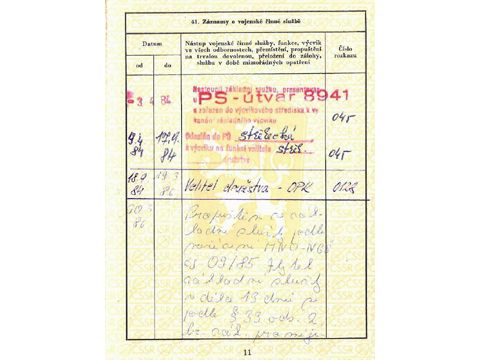 61. Záznamy o vojenské činné službě
Datum
od
do
Nástup vojenské činné služby, funkce, výcvik
ve všech odbornostech, přemístění, propuštění
na trvalou dovolenou, přeložení do zálohy,
služba v době mimořádných opatření
Číslo
rozkazu
-3 4 84
Nastoupil základní službu, prezentován
PS-útvar 8941
a zařazen do výcvikového střediska k vy
konání základního výcviku
045
9.4
84
17.9.
84
Odeslán do PŠ střelecká
k výcviku na funkci velitele střel.
družstva
045
18.9
84
19.3
86
Velitel družstva - OPK
0122
20.3
86
Propuštěn ze zák
ladní služby podle
nařízení MNO-NGŠ
čs 09/85
základní služby
v délce 13 dní se
podle § 33 ods. 2,
11